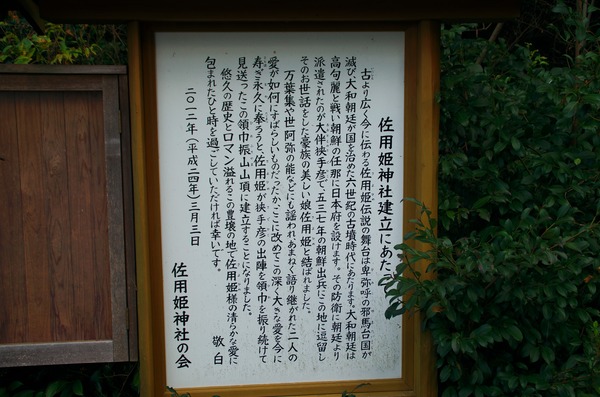 佐用姫神社建立にあた
古より広く今に伝わる佐用姫伝説の舞台は卑弥呼の邪馬台国が
滅び大和朝廷が国を治めた六世紀の古墳時代にあたります。大和朝廷は
高句麗と戦い朝鮮の任那に日本府を設けます。その防衛に朝廷より
派遣されたのが大伴挟手彦で、五三七年の朝鮮出兵にこの地に逗留し
そのお世話をした豪族の美しい娘佐用姫と結ばれました。
万葉集や世阿弥の能などにも謡われあまねく語り継がれた二人の
愛が如何にすばらしいものだったか、ここに改めてこの深く大きな愛を今に
寿ぎ永久に奉ろうと、佐用姫が挟手彦の出陣を領巾を振り続けて
見送ったこの領巾振山山頂に建立することになりました。
悠久の歴史とロマン溢れるこの豊壌の地で佐用姫様の清らかな愛に
包まれたひと時を過ごしていただければ幸いです。
敬白
二〇一二年(平成二四年)三月三日
佐用姫神社の会